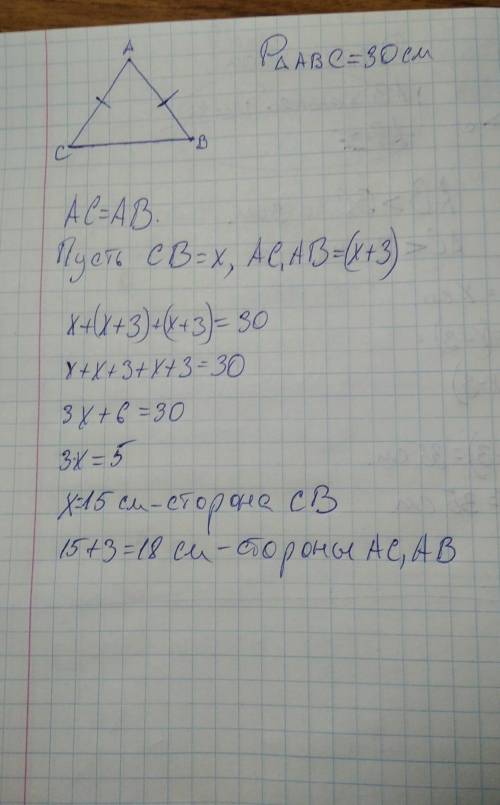 A
P△ABC=30см
C
B
AC=AB.
Пусть CB=x, AC,AB=(x+3)
x+(x+3)+(x+3)=30
x+x+3+x+3=30
3x+6=30
3x=5
x=15 см-сторона CB
15+3=18 см-стороны AC,AB